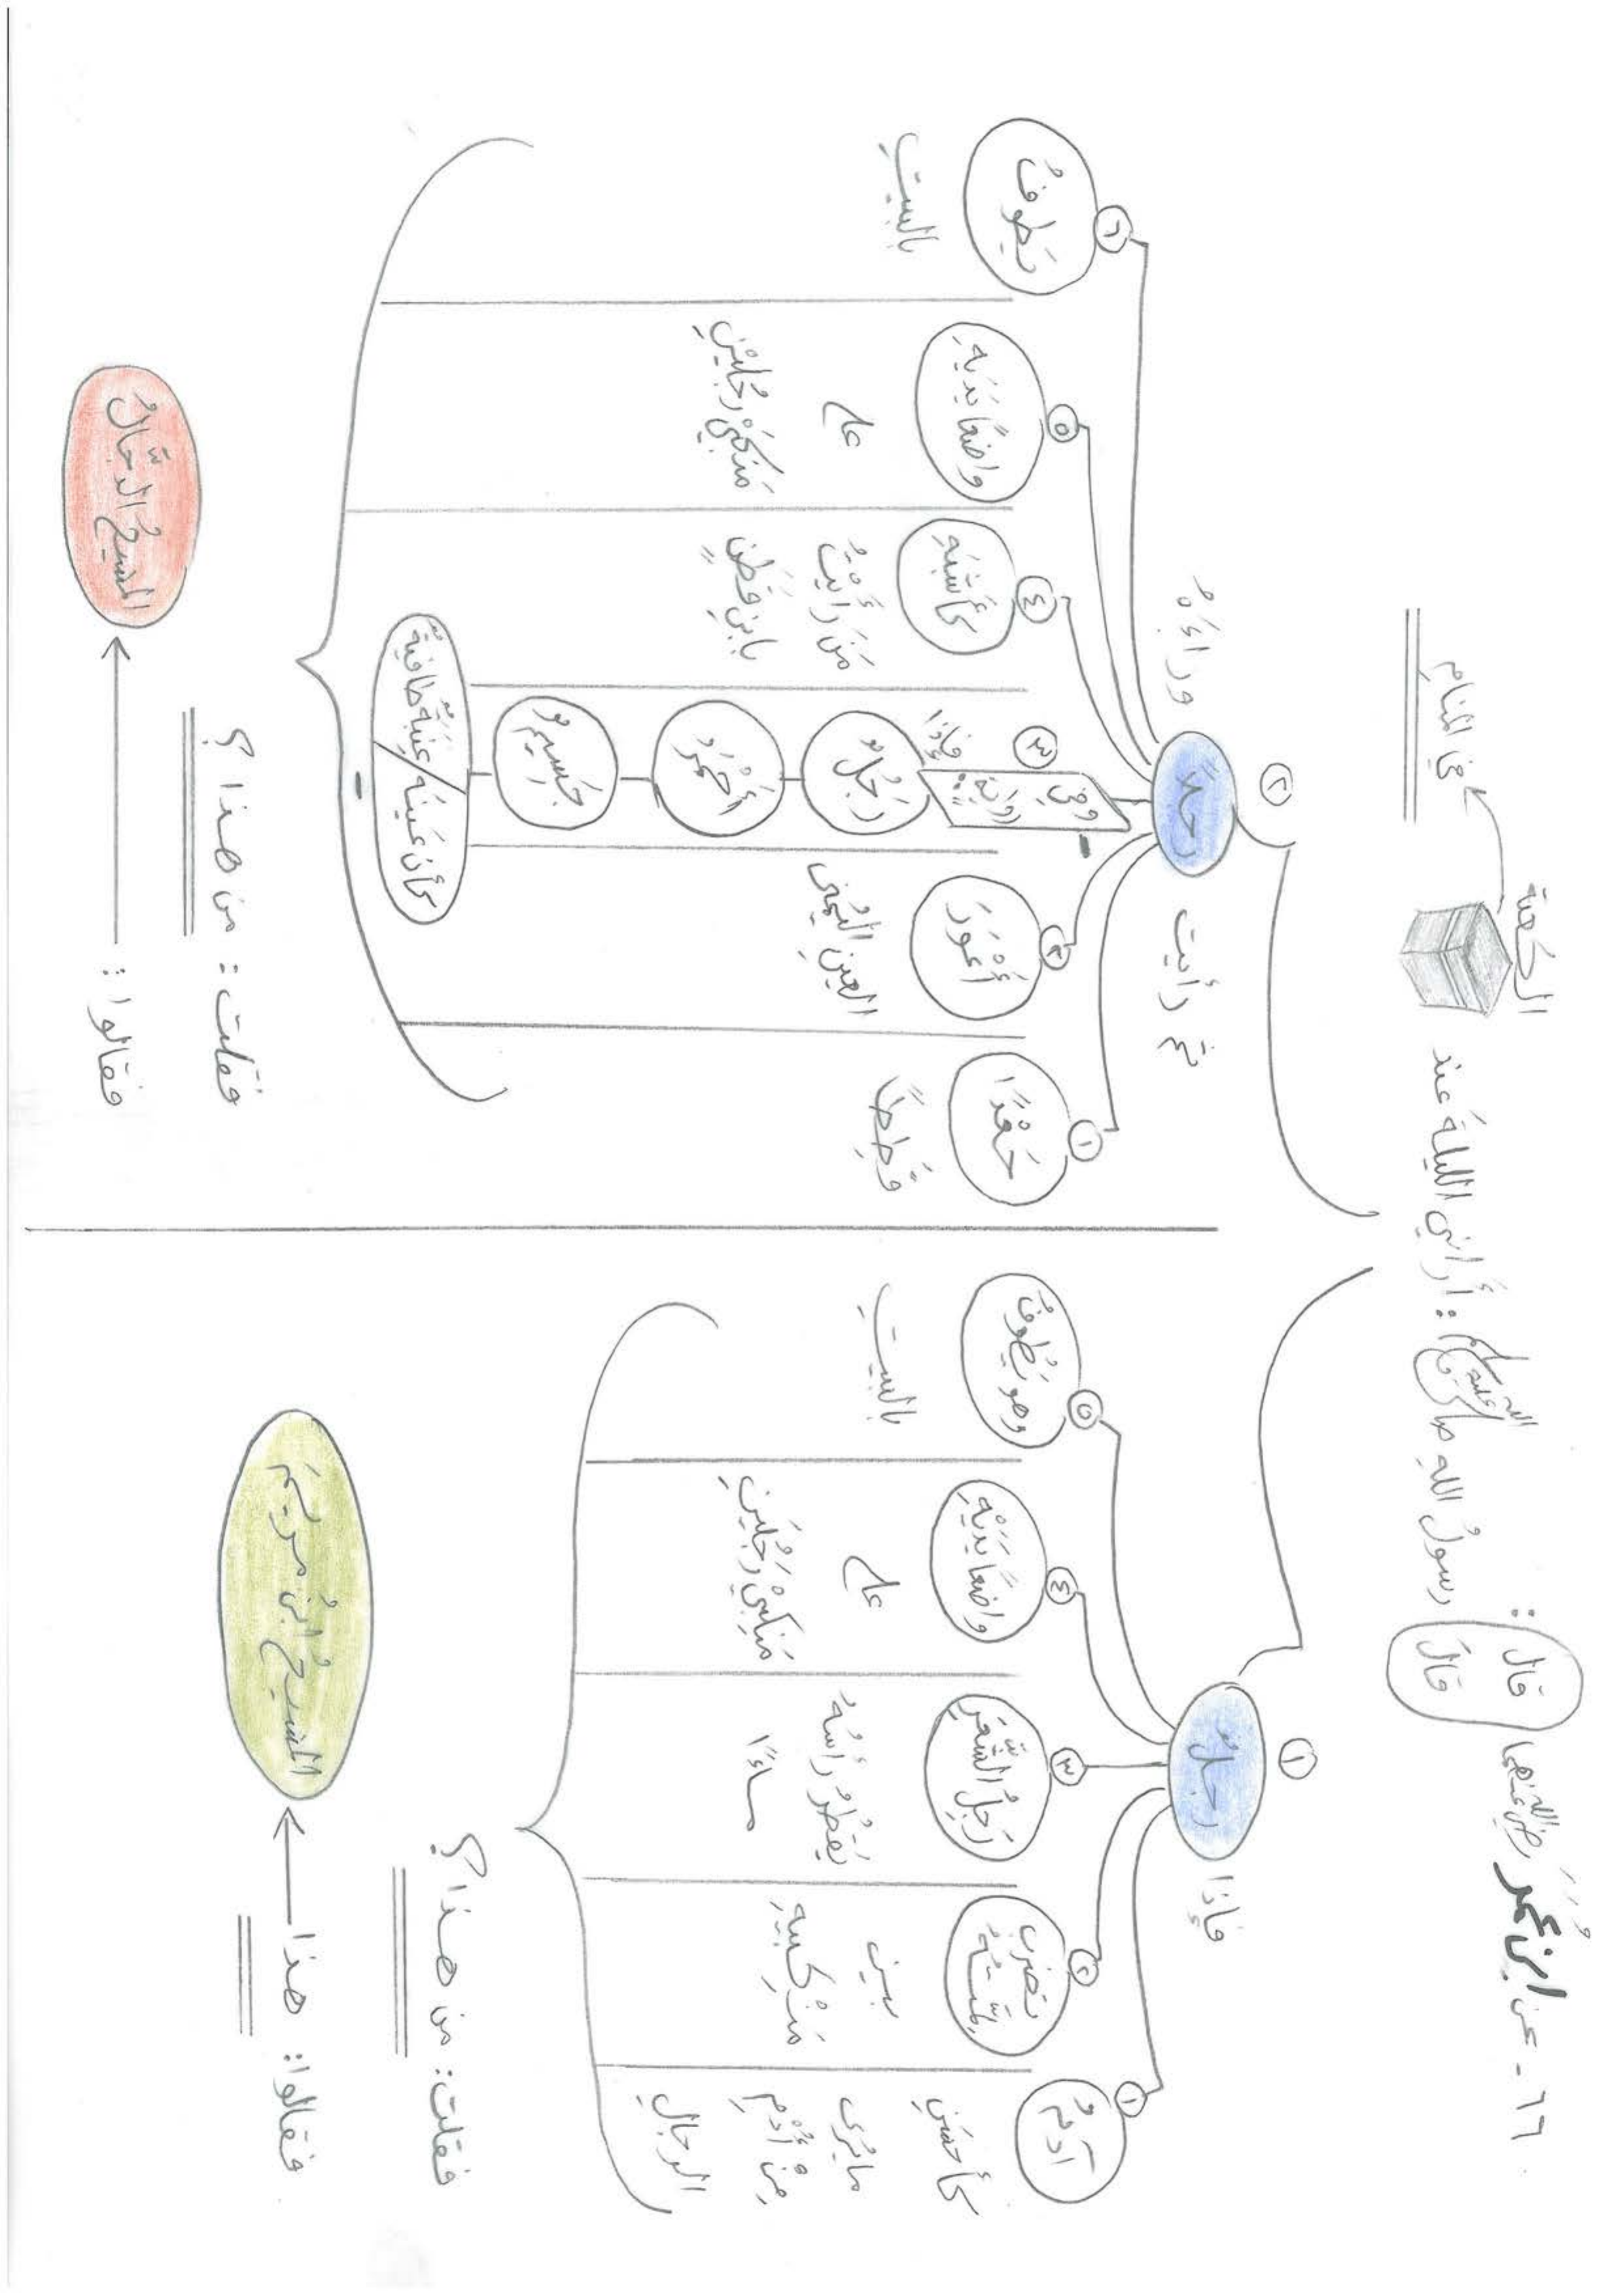 ٦٦ - عن ابن عُمَرَ رضي الله عنهما قال :
قال رسولُ اللهِ صلى الله عليه وسلم : أُراني الليلةَ عند الكعبة في المنام
١
فإذا رجلٌ
١ آدَمُ
كأحسَنِ
ما يُرى
مِنْ أُدْمِ
الرجالِ
٢ تضرب لِمَّتُهُ
بين
مَنْكِبيهِ
٣ رَجِلُ الشَّعَرِ
يَقطُرُ رأسُهُ
ماءً
٤ واضعًا يَدَيْهِ
على
مَنكِبَيْ رَجُلَينِ
٥ وهو يَطُوفُ
بالبيتِ
فقلت : من هذا ؟
فقالوا : هذا
المسيحُ ابنُ مريمَ
٢
ثمَّ رأيت رجلاً وراءَهُ
١ جَعْدًا
قَطِطًا
٢ أَعْوَرَ
العينِ اليُمنى
٣ وفي روايةٍ :
فإذا
رَجُلٌ
أَحْمَرُ
جَسِيمٌ
كأنَّ عَينَهُ عِنَبَةٌ طافيةٌ
٤ كأَشْبَهِ
مَن رَأَيْتُ
بابنِ قَطَنٍ
٥ واضعًا يَدَيهِ
على
مَنكِبَيْ رَجُلَيْنِ
٦ يَطوفُ
بالبيتِ
فقلت : من هذا ؟
فقالوا :
المسيحُ الدجَّالُ